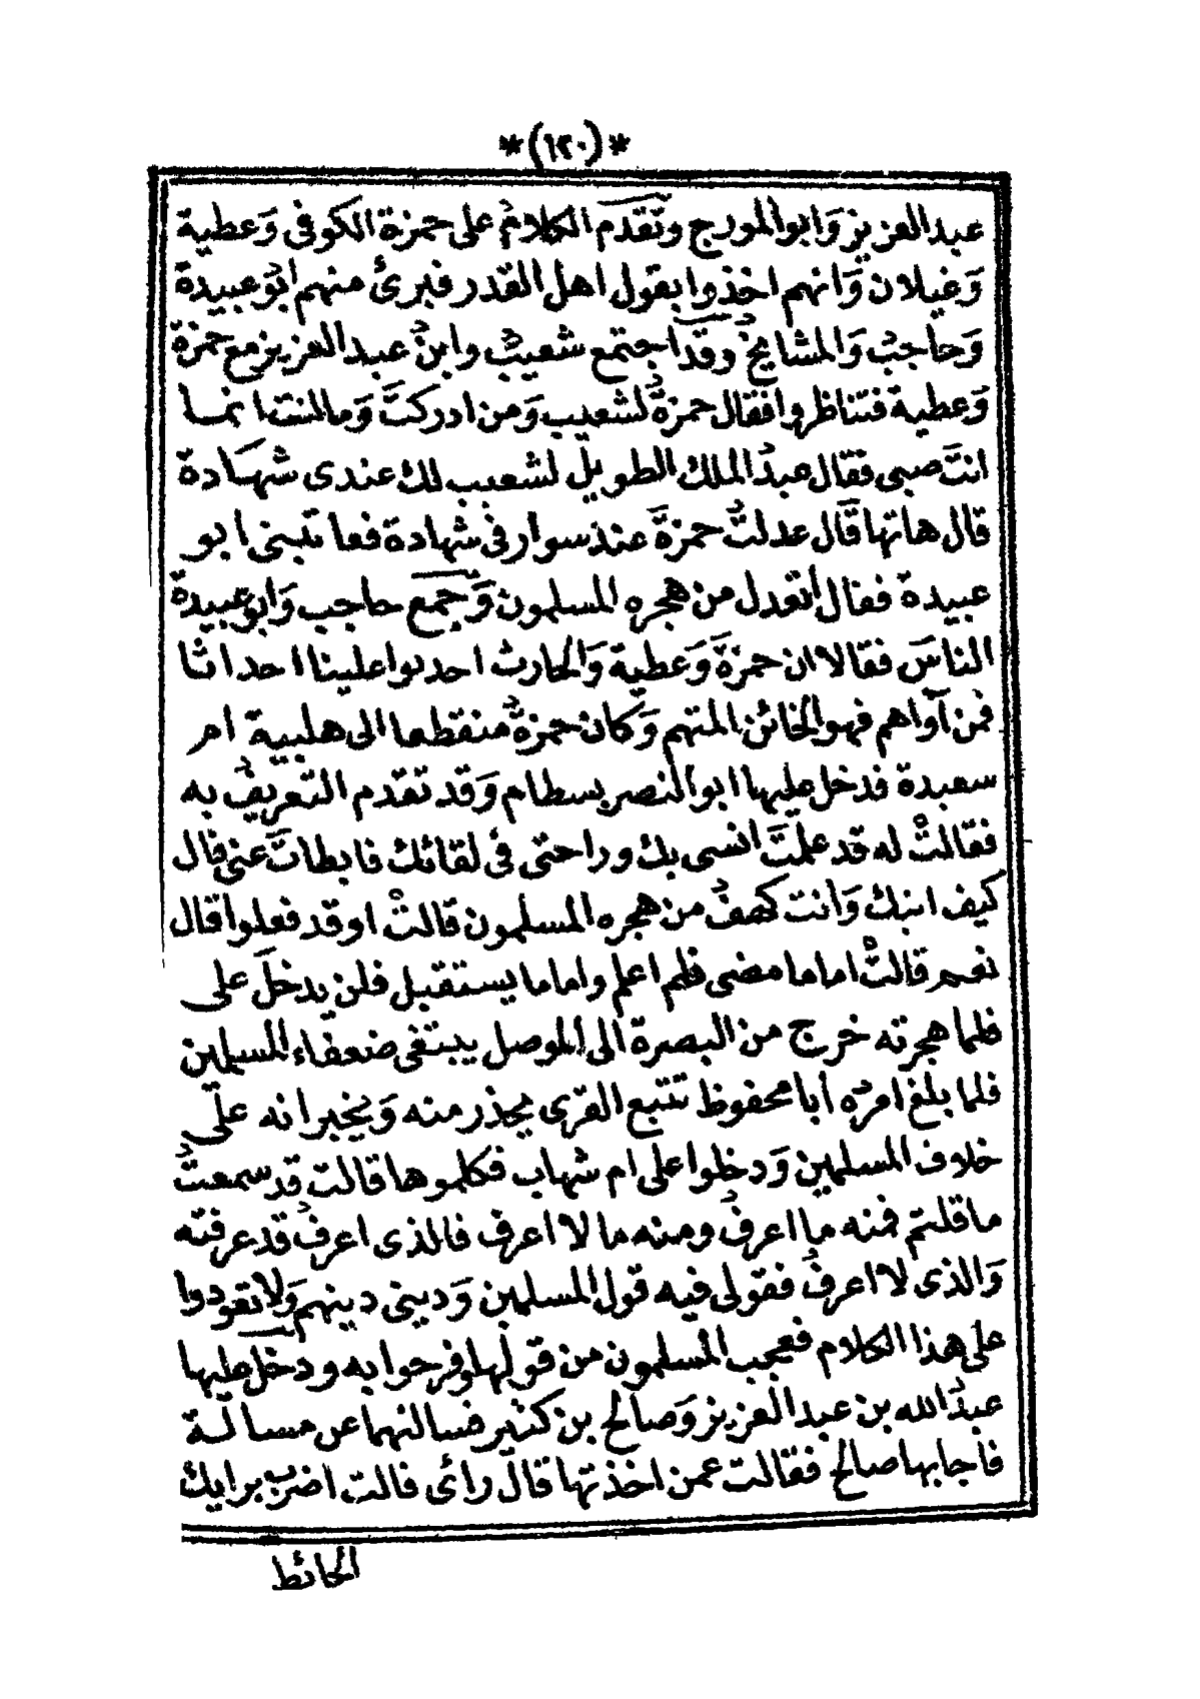 *(١٢٠)*
عبد العزيز وَابو المورج وتَقدَم الكلامُ على حمزة الكوفى وَعطية
وَغيلان وَانهم اخذوا بقول اهل القدر فبرئ منهم ابُو عبيدة
وَحاجبُ وَالمشايخُ وقَد اجتمع شعيبُ وابنُ عبد العزيز مع حمزة
وَعطية فتناظروا فقال حمزةُ لشعيب وَمن ادركتَ وَما انما
انتَ صبى فقال عبدُ الملك الطويل لشعيب لك عندى شهَادة
قال هاتها قَال عدلتُ حمزةَ عند سوار فى شهادة فعاتبنى ابو
عبيدة فقال اتعدل من هجره المسلمون وَجَمع حاجب وَابو عبيدة
الناسَ فقالا ان حمزَة وَعطية وَالحارث احدثوا علينا احداثا
فمن آواهم فهو الخائن المتهم وَكان حمزةُ منقطعا الى هلبية ام
سعيدة فدخل عليها ابو النصر بسطام وَقد تقدم التعريفُ به
فقالتْ له قد علمتَ انسى بك وراحتى فى لقائك فابطاتَ عنى قال
كيف اتيك وَانت كهفُ من هجره المسلمون قالتْ اوقد فعلوا قال
نعم قالتْ اما ما مضى فلم اعلم واما ما يستقبل فلن يدخلَ على
فلما هجرته خرج من البصرة الى الموصل يبتغى ضعفاء المسلمين
فلما بلغ امرُه أبا محفوظ تتبع القرى يحذر منه وَيخبر انه علَى
خلاف المسلمين وَدخلوا على ام شهاب فكلموها قالت قد سمعتُ
ما قلتم فمنه ما اعرفُ ومنه ما لا اعرف فالذى اعرفُ قد عرفته
وَالذى لا اعرفُ فقولى فيه قول المسلمين وَدينى دينهم وَلا تعودوا
على هذا الكلام فعجب المسلمون من قولها وفرحوا به ودخل عليها
عبدُ الله بن عبد العزيز وَصالح بن كثير فسالتهما عن مسالة
فاجابها صالح فقالت عمن اخذتها قال رأى قالت اضرب برايك
الحائط